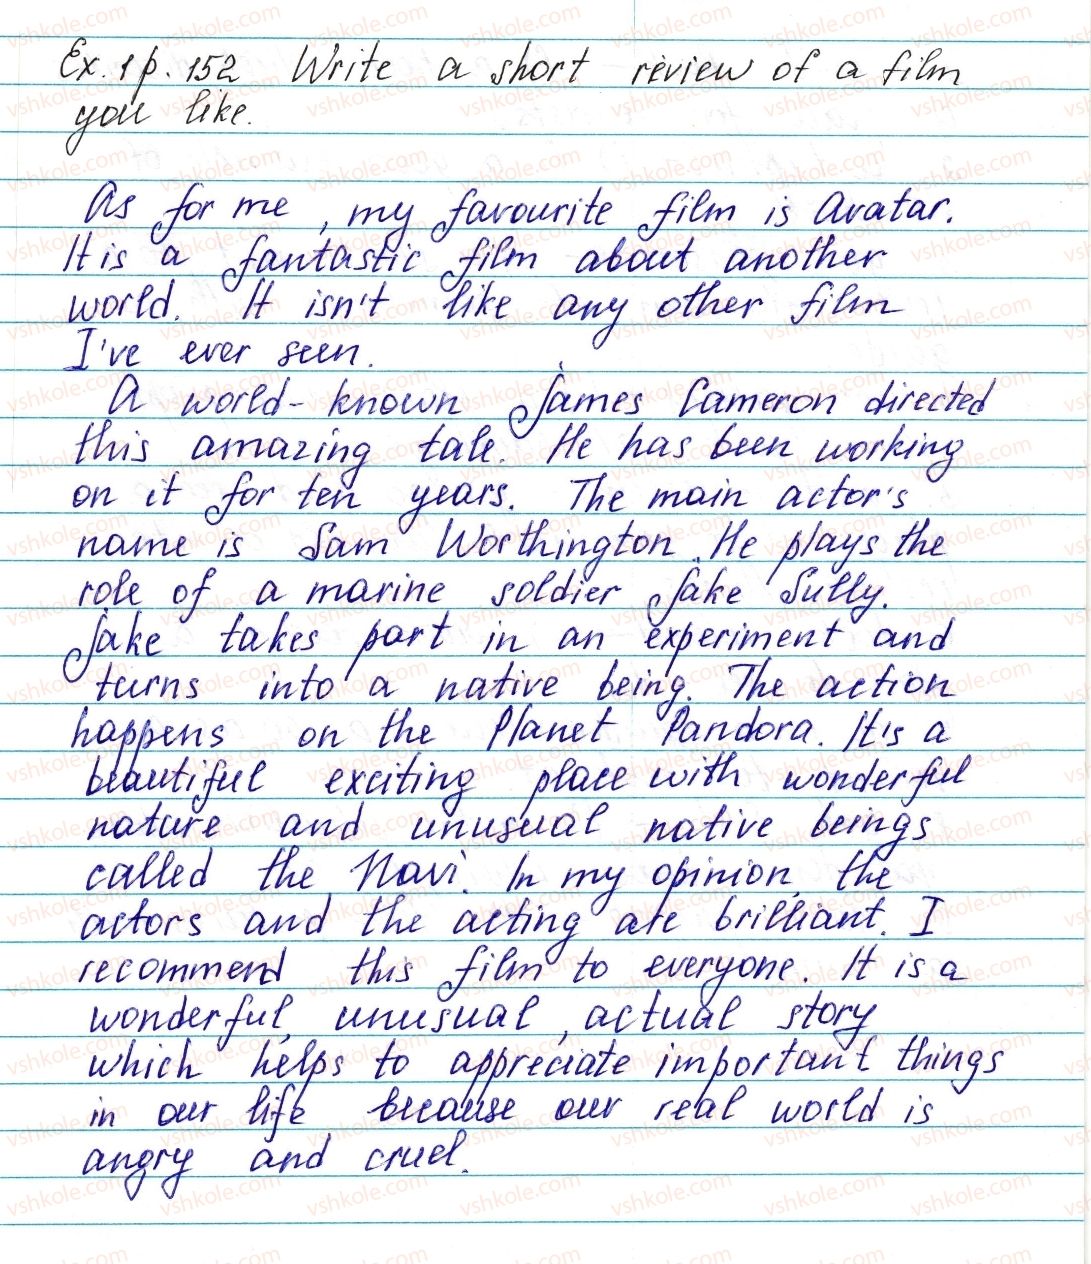 Ex. 1 p. 152 Write a short review of a film
you like.
As for me, my favourite film is Avatar.
It is a fantastic film about another
world. It isn't like any other film
I've ever seen.
A world-known James Cameron directed
this amazing tale. He has been working
on it for ten years. The main actor's
name is Sam Worthington. He plays the
role of a marine soldier Jake Sully.
Jake takes part in an experiment and
turns into a native being. The action
happens on the Planet Pandora. It's a
beautiful exciting place with wonderful
nature and unusual native beings
called the Navi. In my opinion, the
actors and the acting are brilliant. I
recommend this film to everyone. It is a
wonderful, unusual, actual story
which helps to appreciate important things
in our life because our real world is
angry and cruel.
vshkole.com